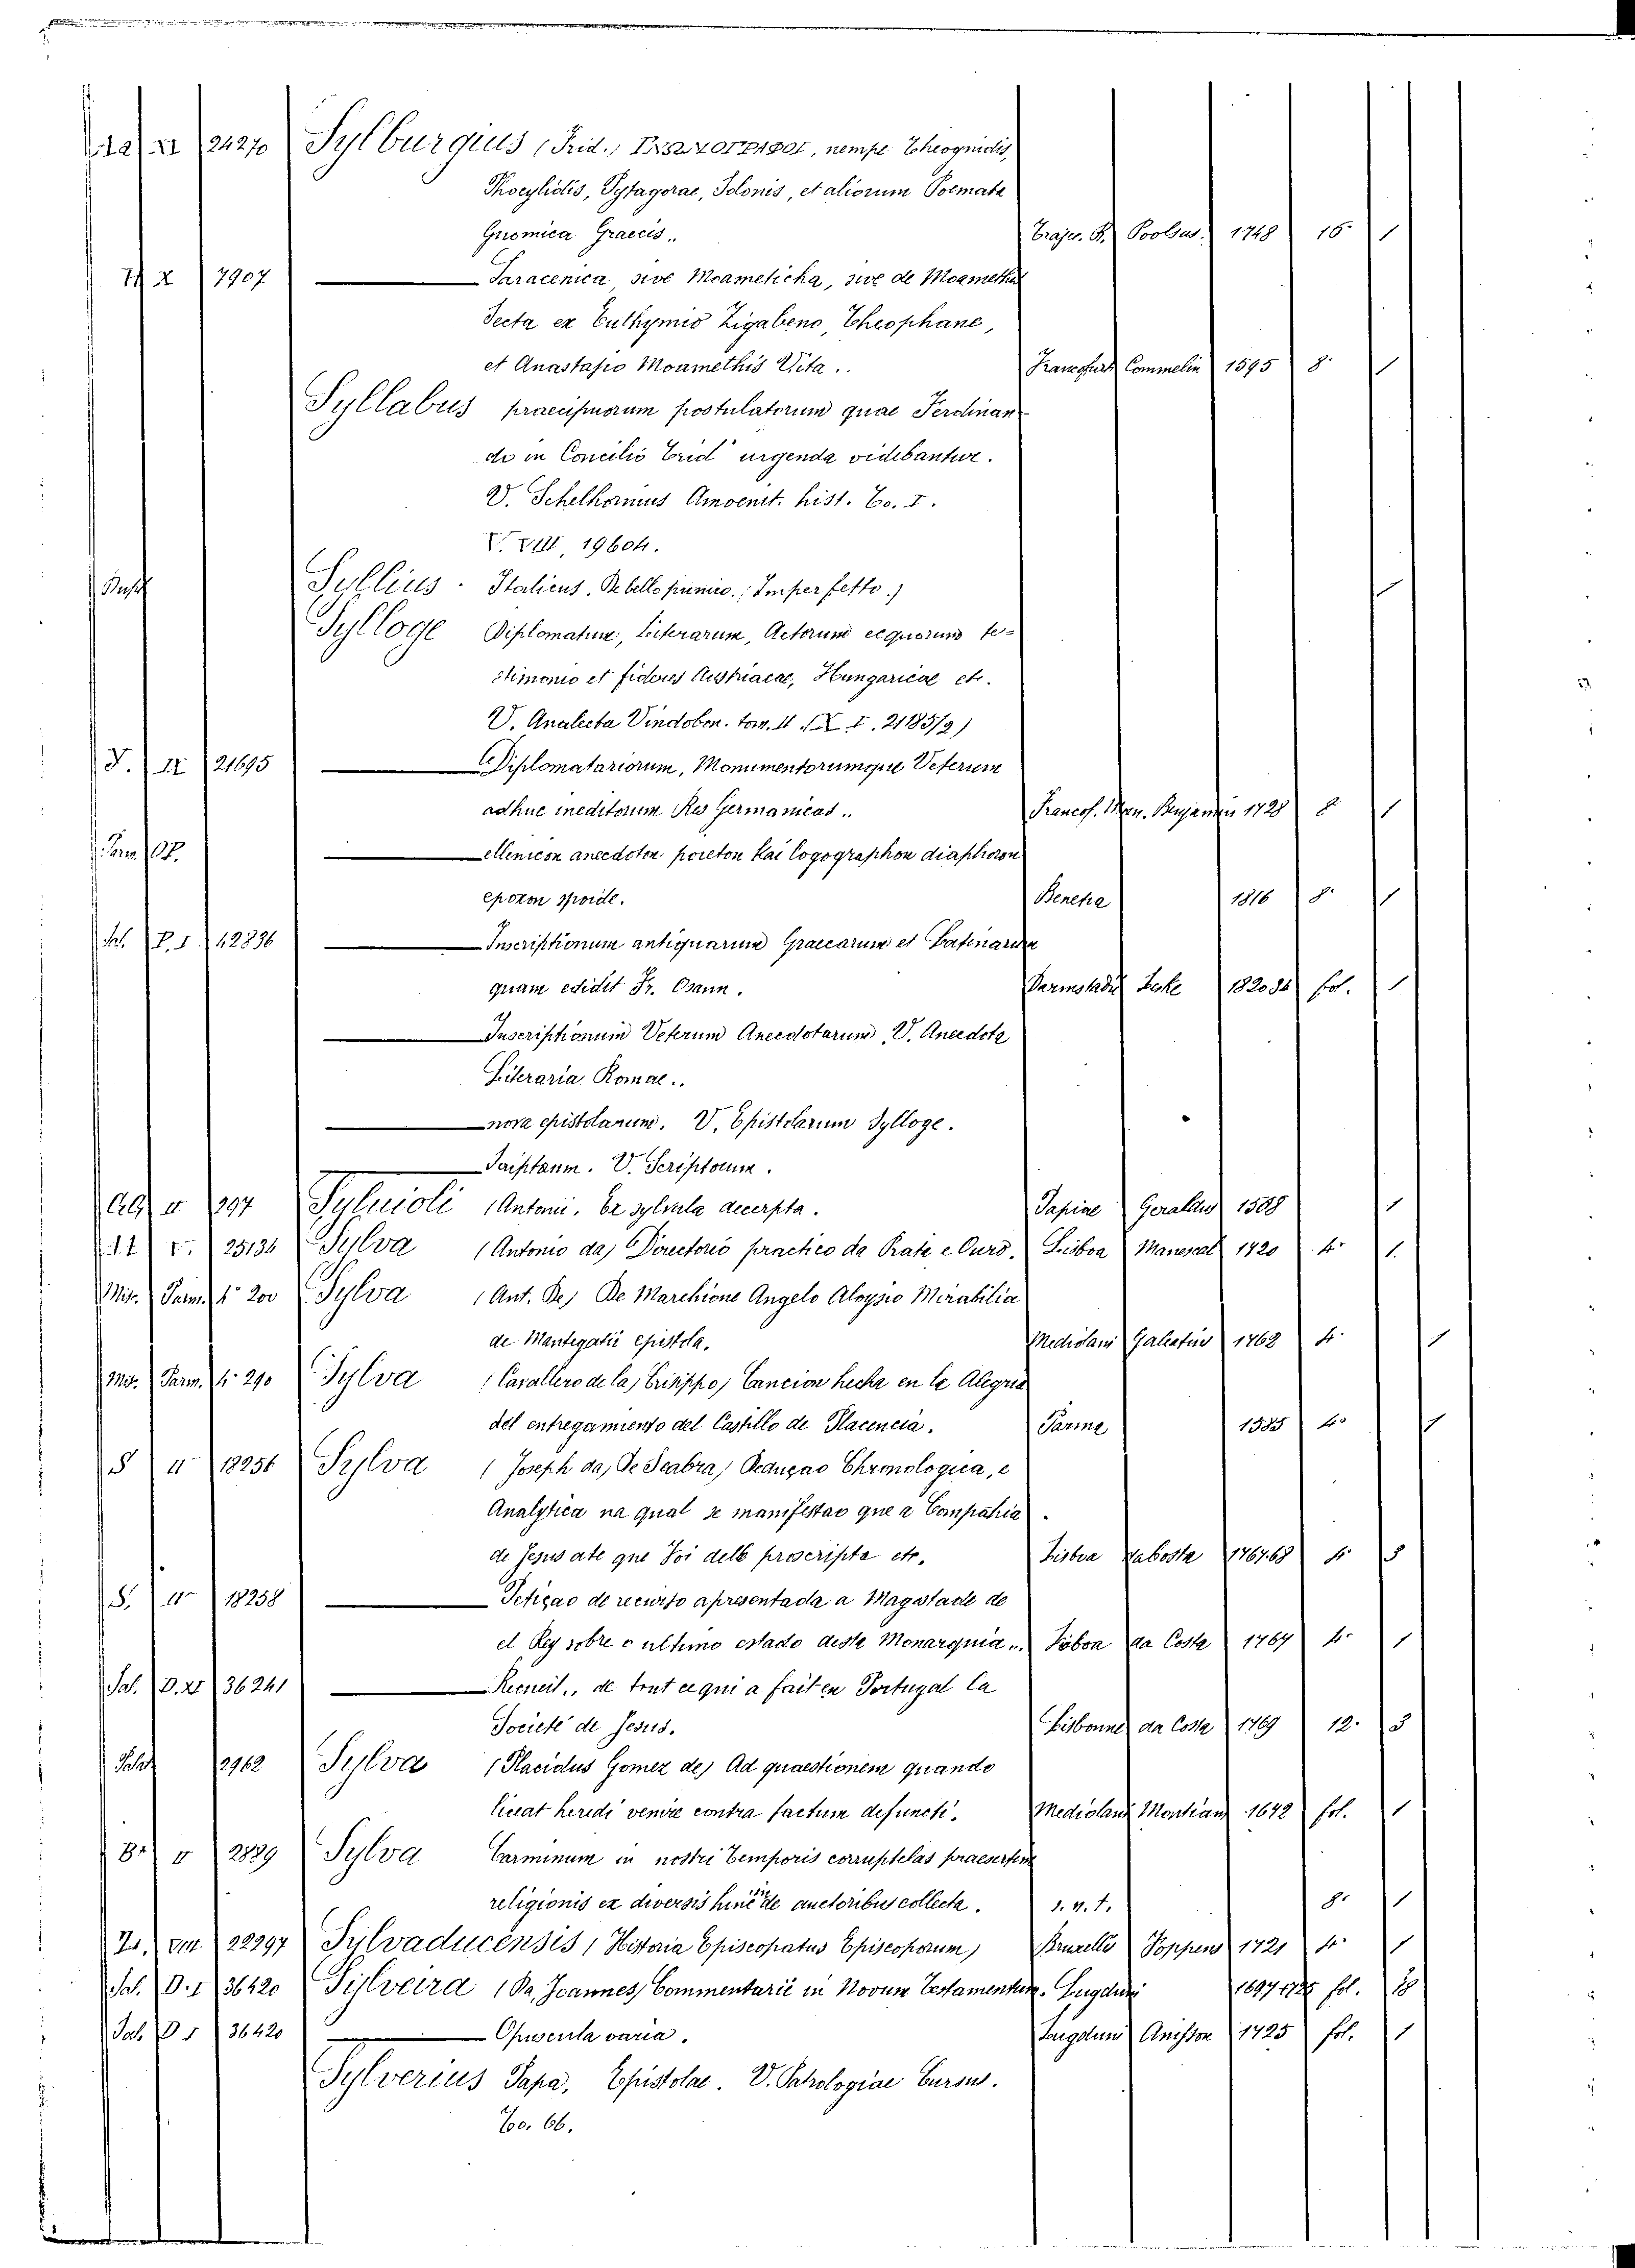 XI 24270 Sylburgius (Frid., nempe Theognidis,
Phocylidis, Pytagorae, Solonis, et aliorum Poemata
Gnomica Graecis.. Trajec. R. Poolsus. 1748 16° 1
X 7907 ——— Saracenica, sive Moameticha, sive de Moamethis
Secta ex Euthymio Zigabeno, Theophane,
et Anastasio Moamethis Vita.. Francofurt Commelin 1595 8° 1
Syllabus praecipuorum postulatorum quae Ferdinan
do in Concilio Trid urgenda videbantur.
V. Schelhornius Amoenit. hist. To. I.
V. VIII 19604.
Syllius Italicus. De bello punico. (Imperfetto.)
Sylloge Diplomatum, Literarum, Actorum ecquorum te-
stimonio et fideres Austriacae, Hungaricae etc.
V. Analecta Vindobon. tom. II (X I. 21183/2)
V. IX 21695 ——— Diplomatariorum, Monumentorumque Veterum
adhuc ineditorum Res Germanicas.. Francof. Benjamin 1728 8 1
——— ellenicon anecdoton poieton kai logographon diaphoron
epoxon spoide. Benetia 1816 8° 1
Sal. P. I 42836 ——— Inscriptionum antiquarum Graecarum et Latinarum
quam edidit Fr. Osann. Darmstadii Leske 182034 fol. 1
——— Inscriptionum Veterum Anecdotarum V. Anecdota
Literaria Romae..
——— nova epistolarum. V. Epistolarum Sylloge.
——— Scriptorum. V. Scriptorum.
II 397 Sylvioli (Antonii. Ex sylvula decerpta. Papiae Geraldus 1508 1
V. 25134 Sylva (Antonio da) Directorio practico da Prata e Ouro. Lisboa Manescal 1720 4° 1.
Mis. Parm. 4° 200 Sylva (Ant. De) De Marchione Angelo Aloysio Mirabilia
de Mantegatii epistola. Mediolani Galeatius 1762 4° 1
Mis. Parm. 4° 290 Sylva (Cavallero de la, Crisippo) Cancion hecha en la Alegria
del entregamiento del Castillo de Placencia. Parma 1585 4° 1
S II 18256 Sylva (Joseph da, De Seabra) Deduçao Chronologica, e
Analytica na qual se manifestao que a Companhia
de Jesus ate que foi della proscripta etc. Lisboa dabosta 176768 4° 3
S. II 18258 ——— Petiçao de recurso apresentada a Magestade de
el Rey sobre o ultimo estado desta Monarquia.. Lisboa da Costa 1767 4° 1
Sal. D. XI 36241 ——— Recueil.. de tout ce qui a fait en Portugal la
Societé de Jesus. Lisbonne da Costa 1769 12° 3
Palat 2962 Sylva (Placidus Gomez de) Ad quaestionem quando
liceat heredi venire contra factum defuncti. Mediolani Montiani 1642 fol. 1
B° II 2829 Sylva Carminum in nostri temporis corruptelas praesertim
religionis ex diversis hinc inde auctoribus collecta. s. n. t. 8° 1
VIII 22297 Sylvaducensis (Historia Episcopatus Episcoporum) Bruxellis Foppens 1721 4° 1
Sal. D. I 36420 Sylveira (Da, Joannes) Commentarii in Novum Testamentum. Lugduni 1697 1725 fol. 10
Sal. D I 36420 ——— Opuscula varia. Lugduni Anisson 1725 fol. 1
Sylverius Papa, Epistolae. V. Patrologiae Cursus.
To. 66.